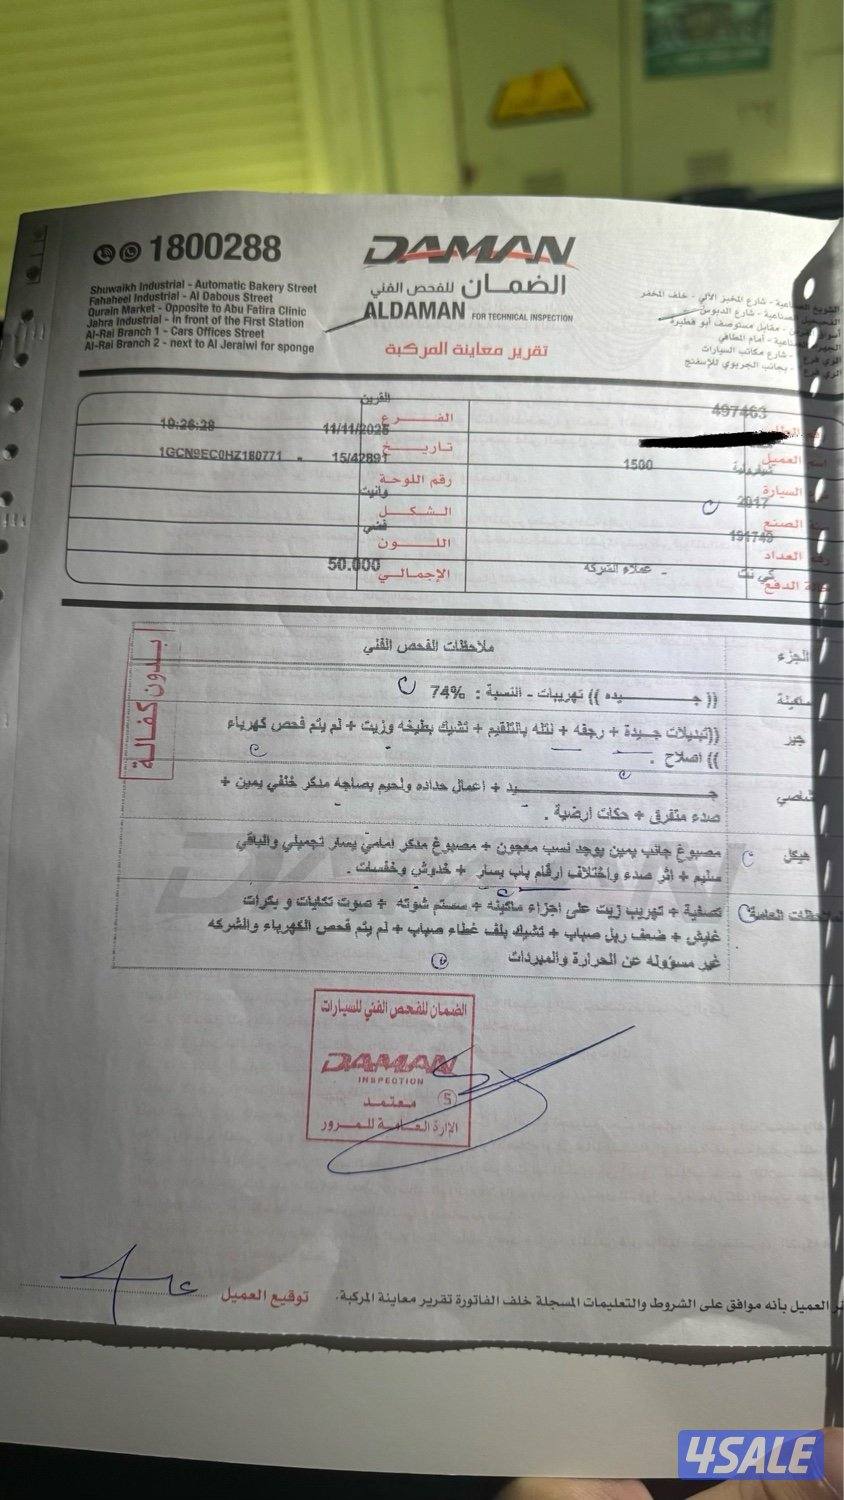 1800288
Shuwaikh Industrial - Automatic Bakery Street
Fahaheel Industrial - Al Dabous Street
Qurain Market - Opposite to Abu Fatira Clinic
Jahra Industrial - in front of the First Station
Al-Rai Branch 1 - Cars Offices Street
Al-Rai Branch 2 - next to Al Jeraiwi for sponge
DAMAN
الضمان للفحص الفني
ALDAMAN FOR TECHNICAL INSPECTION
تقرير معاينة المركبة
الصناعية - شارع المخبز الآلي - خلف المخفر
الصناعية - شارع الدبوس
مقابل مستوصف أبو فطيرة
الصناعية - أمام المطافي
شارع مكاتب السيارات
بجانب الجريوي للإسفنج
497463
الفرع القرين
العميل
تاريخ 11/11/2025 19:26:28
السيارة شيفرولية 1500
رقم اللوحة 15/42891 - 1GCN9EC0HZ180771
الصنع 2017
الشكل وانيت
العداد 191745
اللون فضي
الدفع كي نت - عملاء الشركة
الإجمالي 50.000
الجزء ملاحظات الفحص الفني
بدون كفالة
ماكينة (( جـــيده )) تهريبات - النسبة : 74%
جير ((تبديلات جيدة + رجفه + نتله بالتلقيم + تشيك بطيخه وزيت + لم يتم فحص كهرباء
)) اصلاح .
شاصي جـــيد + أعمال حداده ولحيم بصاجه مدكر خلفي يمين +
صدء متفرق + حكات ارضية .
هيكل مصبوغ جانب يمين يوجد نسب معجون + مصبوغ مدكر امامي يسار تجميلي والباقي
سليم + اثر صدء واختلاف ارقام باب يسار + خدوش وخفسات .
ملاحظات العامة تصفية + تهريب زيت على اجزاء ماكينه + سستم شوته + صوت تكايات و بكرات
غايش + ضعف ربل صباب + تشيك بلف غطاء صباب + لم يتم فحص الكهرباء والشركه
غير مسؤوله عن الحرارة والمبردات
الضمان للفحص الفني للسيارات
DAMAN
INSPECTION
معتمد 5
الإرة العامة للمرور
العميل بأنه موافق على الشروط والتعليمات المسجلة خلف الفاتورة تقرير معاينة المركبة. توقيع العميل
4SALE